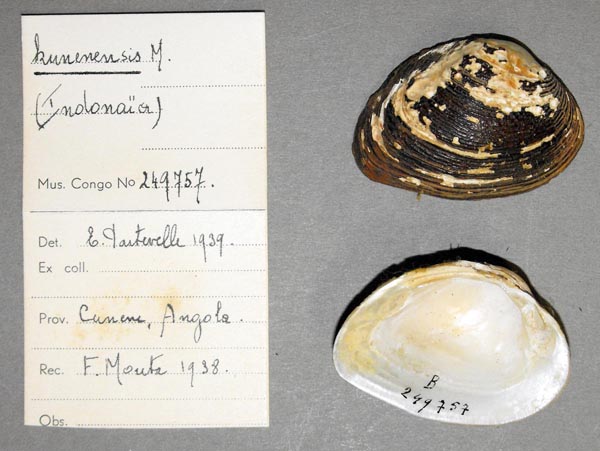 kunenensis M.
(Indonaïa)
Mus. Congo No 249757.
Det. E. Dartevelle 1939.
Ex coll.
Prov. Cunene, Angola.
Rec. F. Mouta 1938.
Obs.
B
249757